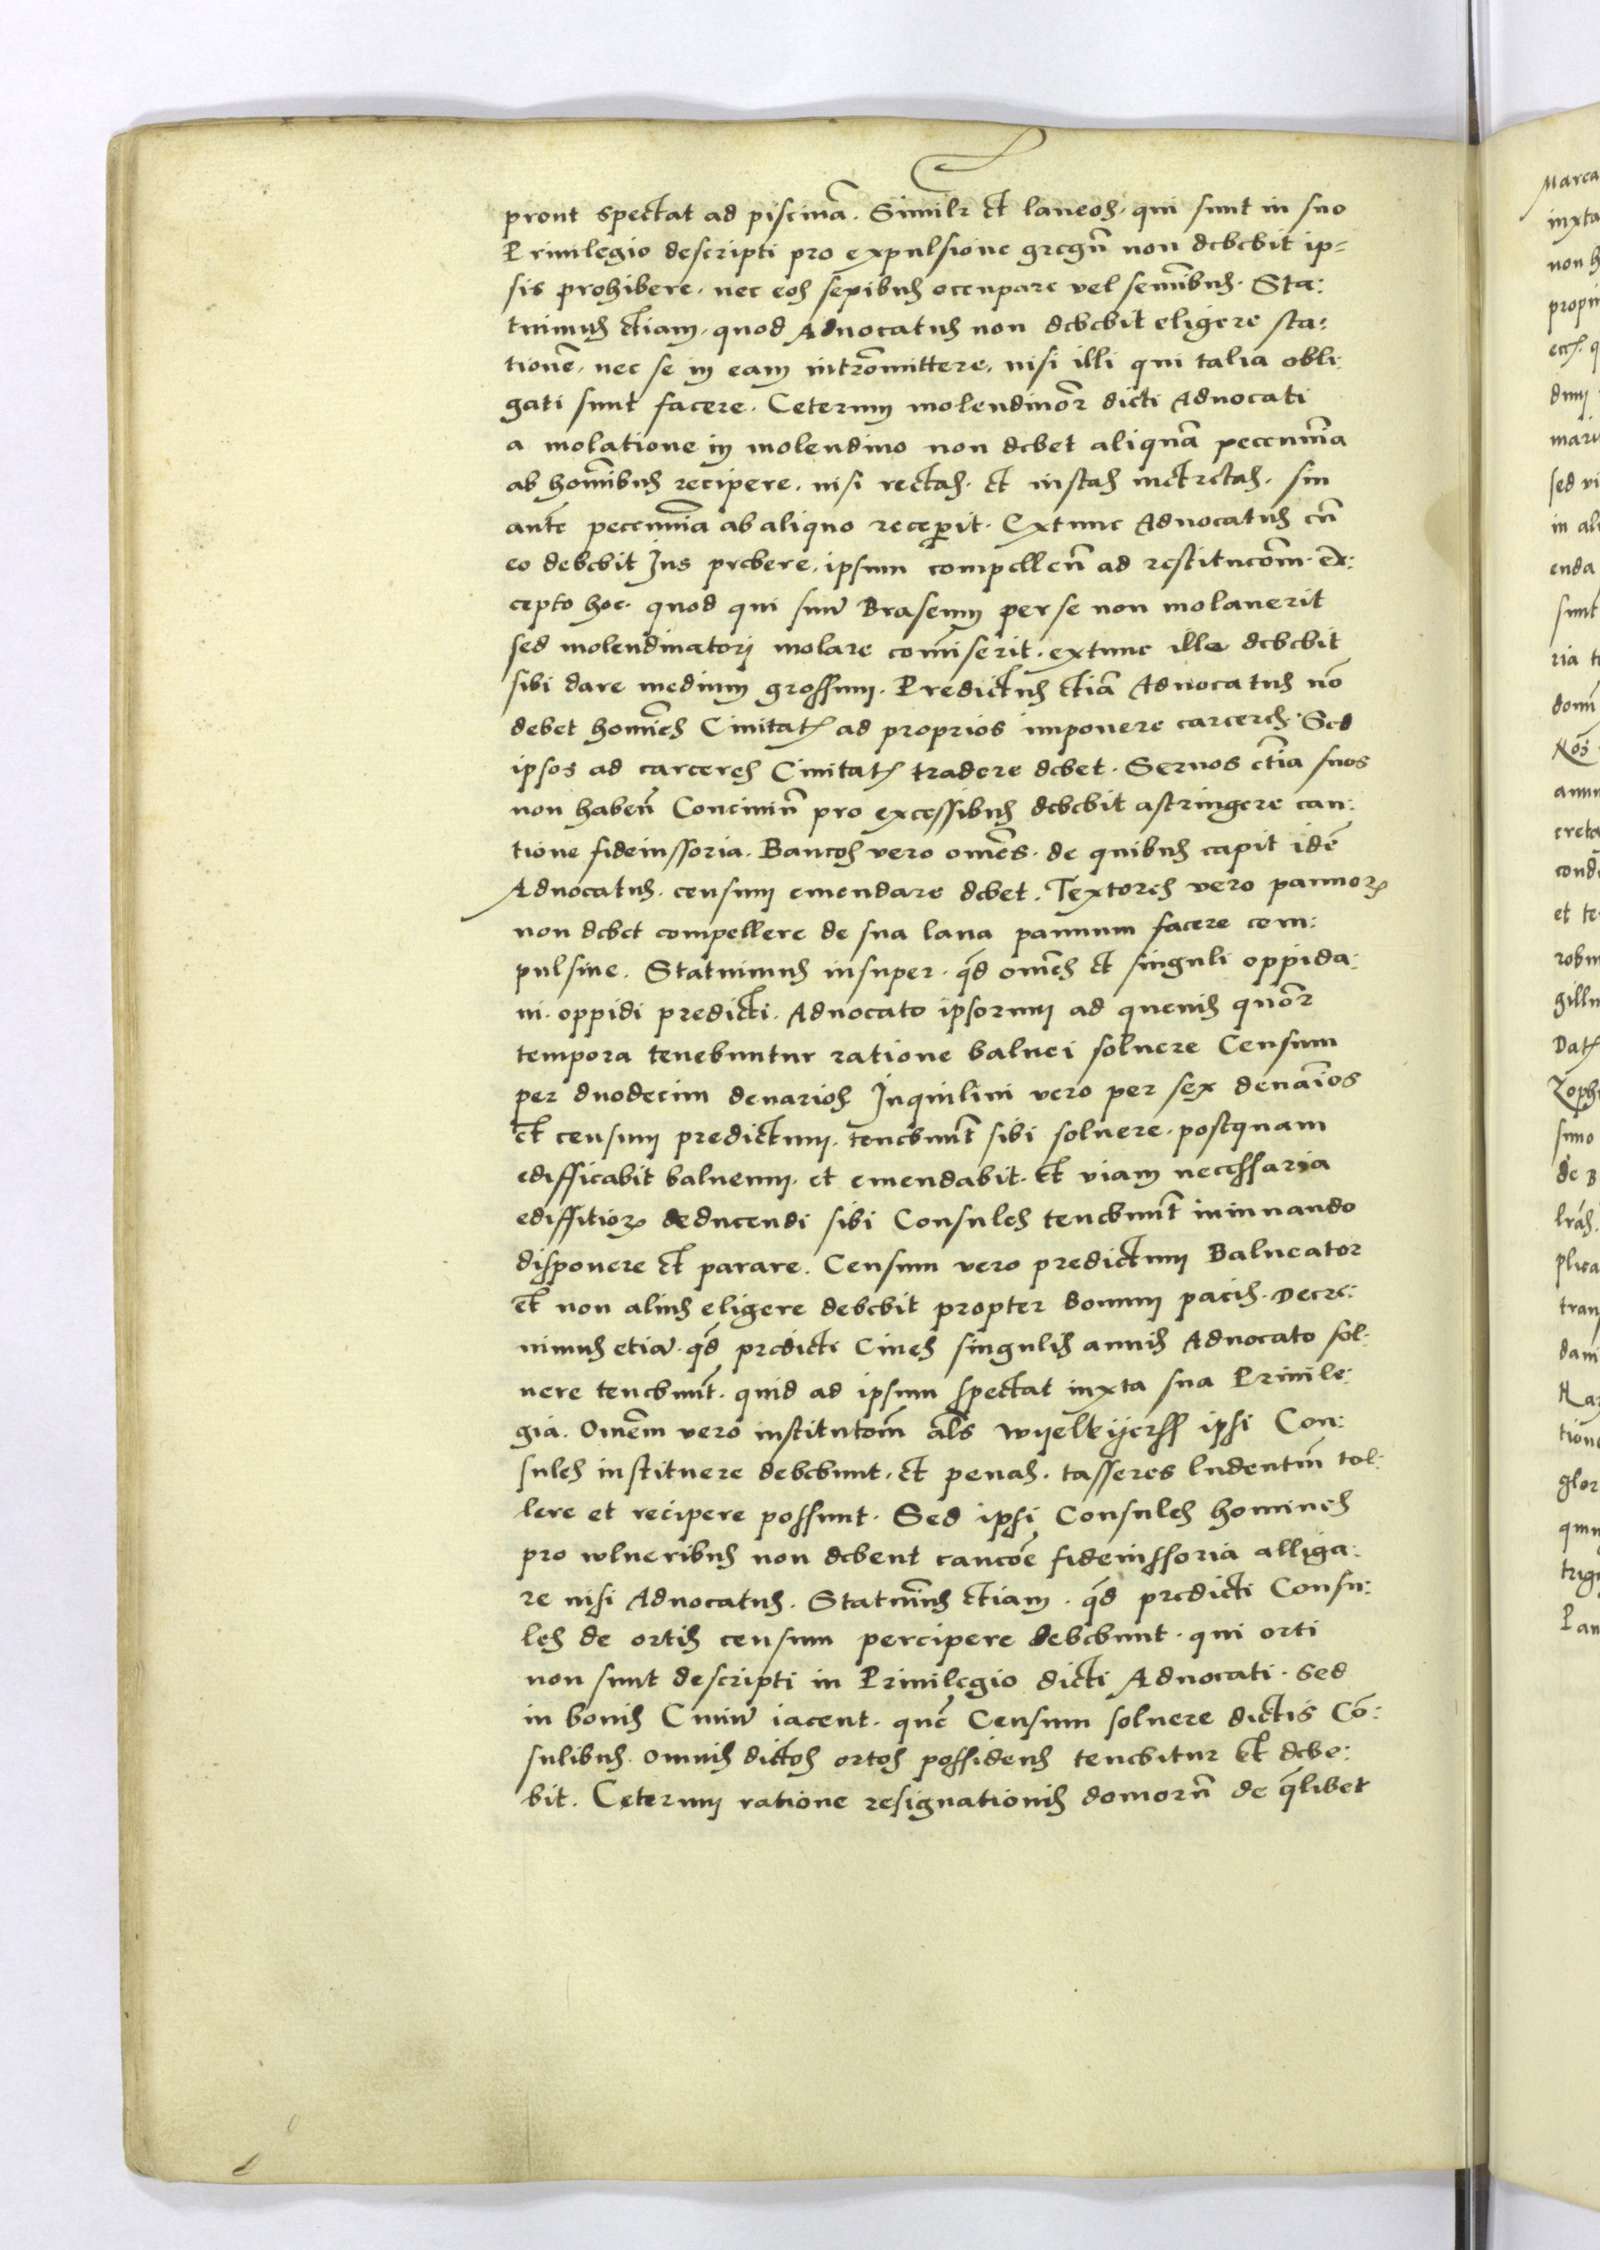 prout spectat ad piscinā. Similr et laneos. qui sunt in suo
Priuilegio descripti pro expulsione gregū non debebit ip=
sis prohibere. nec eos sepibus occupare vel seminibus. Sta:
tuimus etiam. quod Aduocatus non debebit eligere sta:
tionē. nec se in eam intromittere. nisi illi qui talia obli:
gati sunt facere. Ceterum molendinor dicti Aduocati
a molatione in molendino non debet aliquā pecuniā
ab hoībus recipere. nisi rectas. et iustas metretas. sin
ante pecuniā ab aliquo receperit. Extunc Aduocatus cū
eo debebit Jus prebere. ipsum compellen̄ ad restitucōm. ex:
cepto hoc. quod qui suū Braseum per se non molauerit
sed molendinatori molare comiserit. extunc ille debebit
sibi dare medium grossum. Predictus etiā Aduocatus nō
debet hoīes Ciuitatꝭ ad proprios imponere carceres. Sed
ipsos ad carceres Ciuitatꝭ tradere debet. Seruos etiā suos
non haben̄ Conciuiū pro excessibus debebit astringere cau:
tione fideiussoria. Bancos vero omēs. de quibus capit idē
Aduocatus. censum emendare debet. Textores vero pannoꝝ
non debet compellere de sua lana pannum facere com:
pulsiue. Statuimus insuper. qd̄ omēs et singuli oppida:
ni. oppidi predicti. Aduocato ipsorum ad queuis quōr
tempora tenebuntur ratione balnei soluere Censum
per duodecim denarios Inquilini vero per sex denarios
Et censum predictum. tenebunt̄ sibi soluere. postquam
edifficabit balneum. et emendabit. Et viam necessaria
edifitioꝝ deducendi sibi Consules tenebunt̄ in iuuando
disponere et parare. Censum vero predictum Balneator
Et non alius eligere debebit propter bonum pacis. Decre:
uimus etiā. qd̄ predicti Ciues singulis annis Aduocato sol:
uere tenebunt̄. quid ad ipsum spectat iuxta sua Priuile:
gia. Omēm vero institutōm als̄ wyelkyerss ipsi Con:
sules instituere debebunt. et penas. tasseres ludentiū tol:
lere et recipere possunt. Sed ipsi Consules homines
pro vlneribus non debent caucōe fideiussoria alliga:
re nisi Aduocatus. Statuīus etiam. qd̄ predicti Consu:
les de ortis censum percipere debebunt. qui orti
non sunt descripti in Priuilegio dicti Aduocati. Sed
in bonis Ciuiū iacent. quē Censum soluere dictis Cō:
sulibus. omnis dictos ortos possidens tenebitur Et debe:
bit. Ceterum ratione resignationis domorū de qlibet